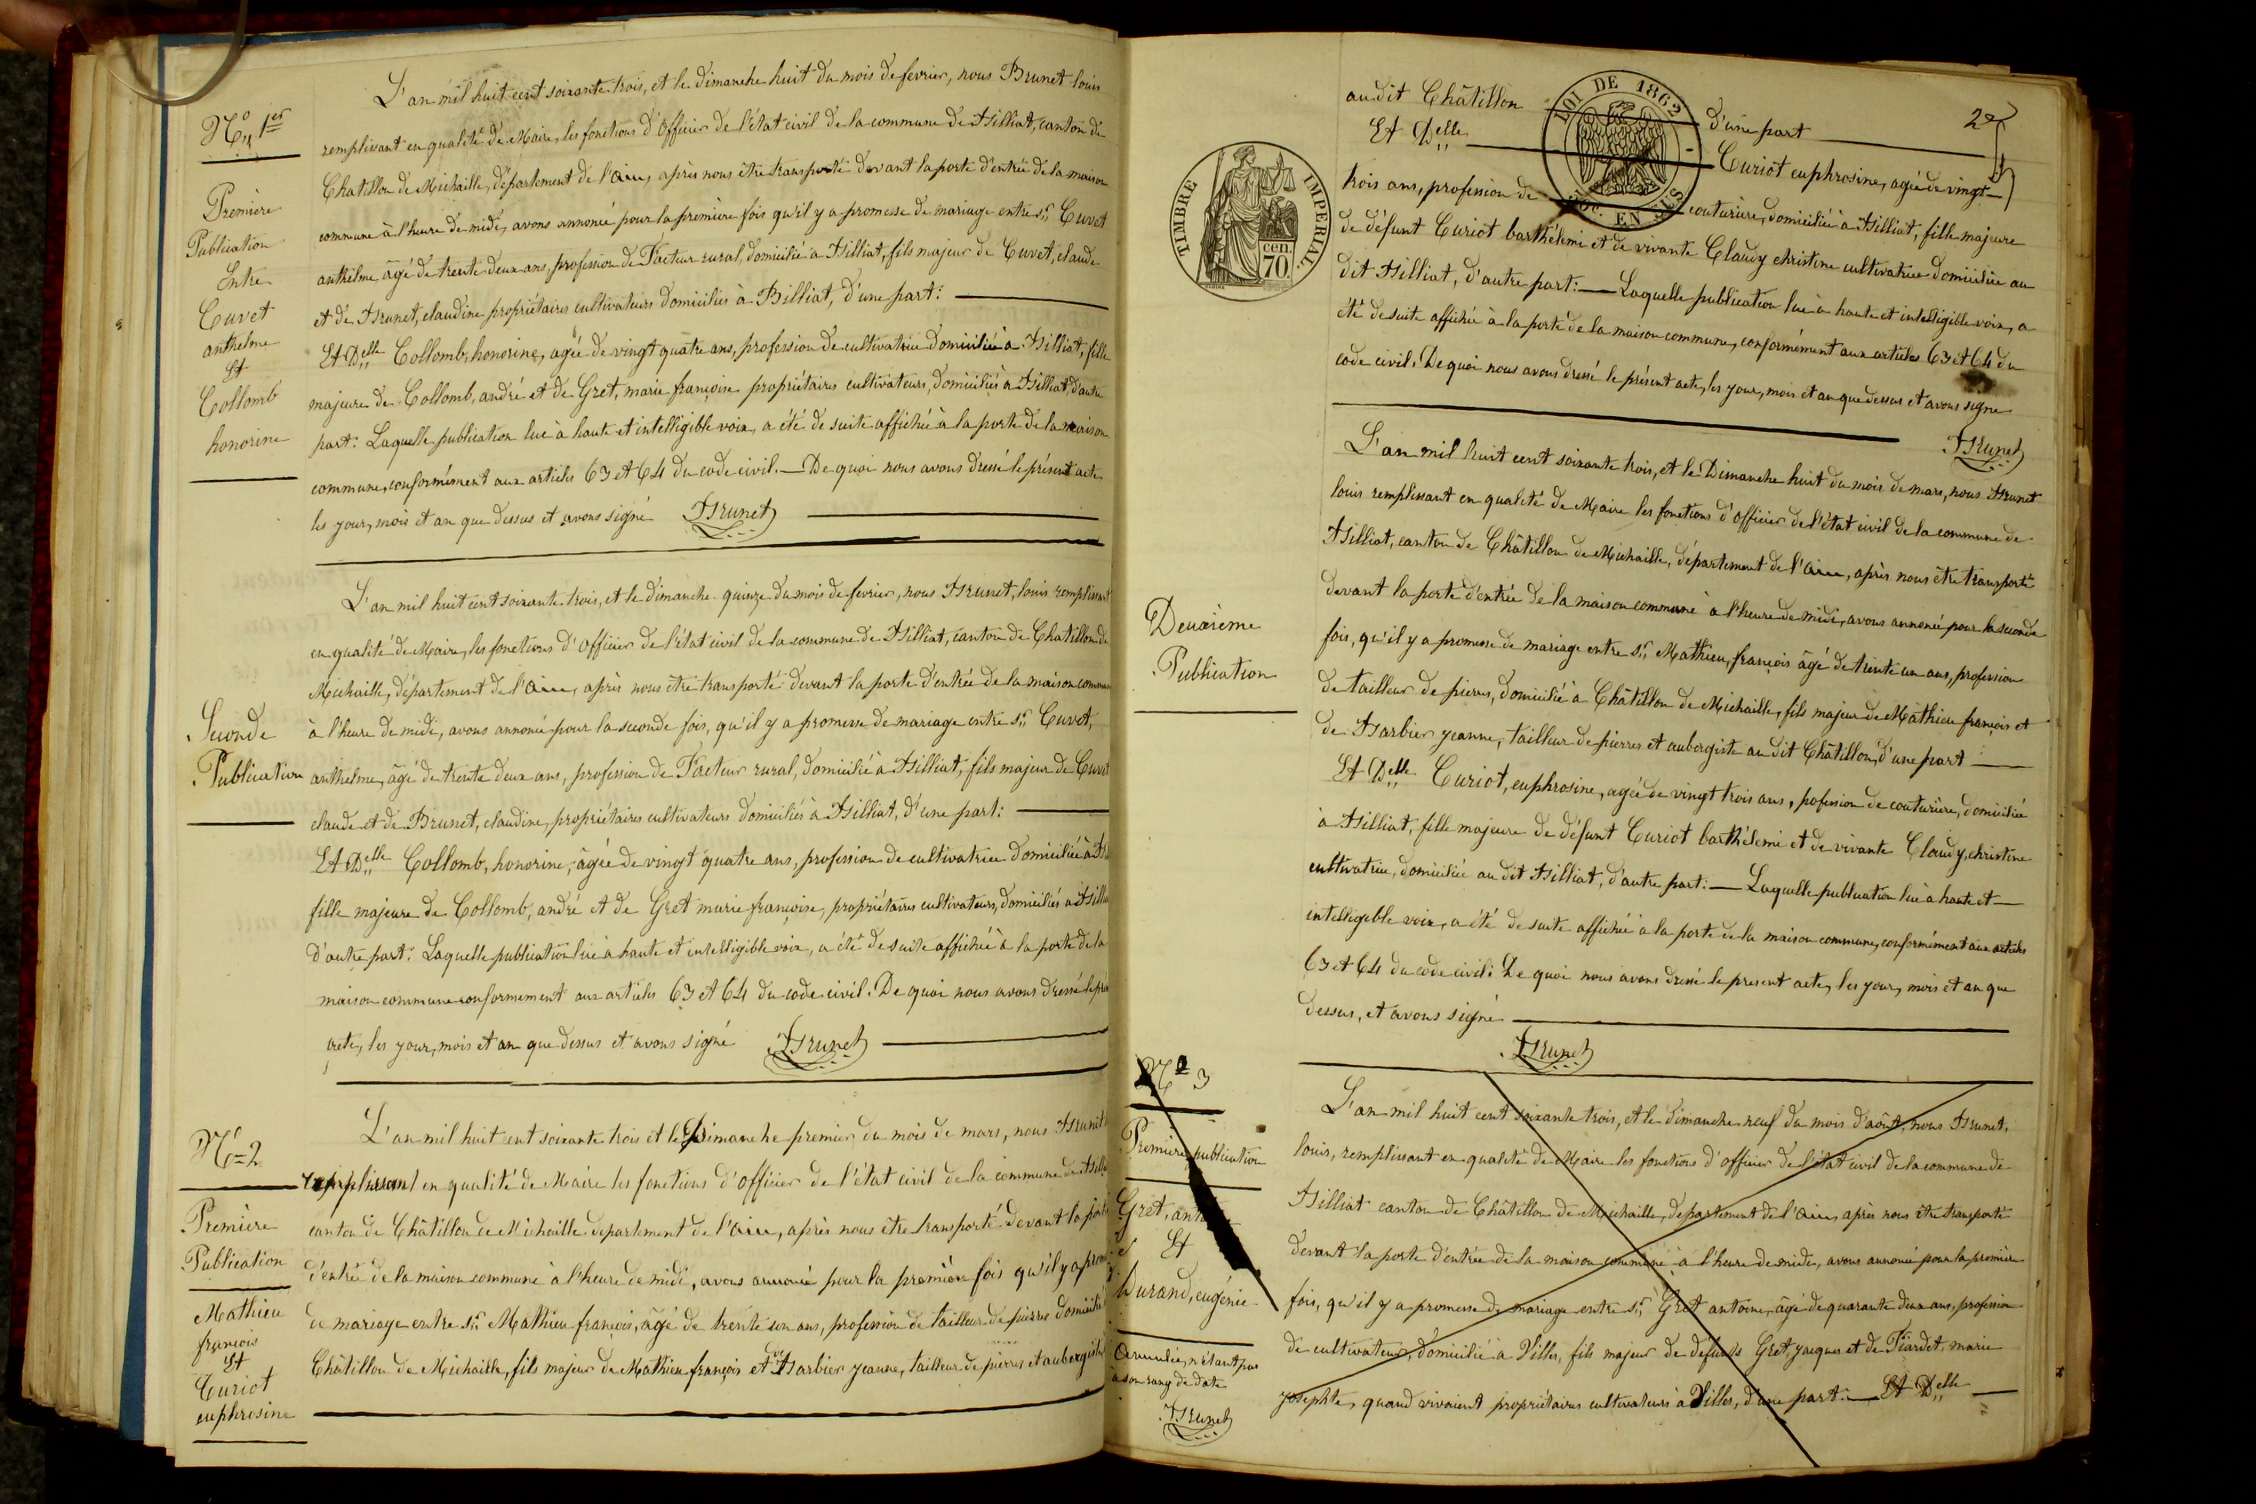 No 1er
Première
Publication
Entre
Cuvet
anthelme
Et
Collomb
honorine
L'an mil huit cent soixante trois, et le dimanche huit du mois de fevrier, nous Brunet louis
remplissant en qualité de Maire, les fonctions d'Officier de l'état civil de la commune de Billiat, canton de
Chatillon de Michaille, département de l'Ain, après nous être transporté devant la porte d'entrée de la maison
commune à l'heure de midi, avons annoncé pour la première fois qu'il y a promesse de mariage entre Sr. Cuvet
anthelme âgé de trente deux ans, profession de Facteur rural, domicilié à Billiat, fils majeur de Cuvet, claude
et de Brunet, claudine propriétaires cultivateurs domiciliés à Billiat, d'une part:
Et Delle Collomb, honorine, agée de vingt quatre ans, profession de cultivatrice domiciliée à Billiat, fille
majeure de Collomb, andré et de Gret, marie françoise propriétaires cultivateurs, domiciliés à Billiat, d'autre
part: Laquelle publication lue à haute et intelligible voix, a été de suite affichée à la porte de la maison
commune, conformément aux articles 63 et 64 du code civil. — De quoi nous avons dressé le présent acte
les jour, mois et an que dessus et avons signé Brunet
Seconde
Publication
L'an mil huit cent soixante trois, et le dimanche quinze du mois de fevrier, nous Brunet, louis remplissant
en qualité de Maire, les fonctions d'Officier de l'état civil de la commune de Billiat, canton de Chatillon de
Michaille, département de l'Ain, après nous être transporté devant la porte d'entrée de la maison commune
à l'heure de midi, avons annoncé pour la seconde fois, qu'il y a promesse de mariage entre Sr. Cuvet,
anthelme, âgé de trente deux ans, profession de Facteur rural, domicilié à Billiat, fils majeur de Cuvet
claude et de Brunet, claudine, propriétaires cultivateurs domiciliés à Billiat, d'une part:
Et Delle Collomb, honorine, âgée de vingt quatre ans, profession de cultivatrice domiciliée à
fille majeure de Collomb, andré et de Gret marie françoise, propriétaires cultivateurs, domiciliés à Billiat
d'autre part: Laquelle publication lue à haute et intelligible voix, a été de suite affichée à la porte de la
maison commune conformement aux articles 63 et 64 du code civil. De quoi nous avons dressé le
acte, les jour, mois et an que dessus et avons signé Brunet
No = 2
Première
Publication
Mathieu
françois
Et
Curiot
euphrosine
L'an mil huit cent soixante trois et le Dimanche premier du mois de mars, nous Brunet
remplissant en qualité de Maire les fonctions d'officier de l'état civil de la commune de Billiat
canton de Châtillon de Michaille departement de l'Ain, après nous être transporté devant la porte
d'entrée de la maison commune à l'heure de midi, avons annoncé pour la première fois qu'il y a
de mariage entre Sr. Mathieu françois, âgé de trente un ans, profession de tailleur de pierres domicilié
Châtillon de Michaille, fils majeur de Mathieu françois et de Barbier jeanne, tailleur de pierres et aubergiste
2e
TIMBRE IMPERIAL.
cen. 70
LOI DE 1862
EN SUS
au dit Châtillon d'une part
Et Delle Curiot euphrosine, agée de vingt
trois ans, profession de couturière, domiciliée à Billiat, fille majeure
de défunt Curiot barthélemi et de vivante Claudy christine cultivatrice domiciliée au
dit Billiat, d'autre part: — Laquelle publication lue à haute et intelligible voix, a
été de suite affichée à la porte de la maison commune, conformément aux articles 63 et 64 du
code civil. De quoi nous avons dressé le présent acte, les jour, mois et an que dessus et avons signé
Brunet
Deuxième
Publication
L'an mil huit cent soixante trois, et le Dimanche huit du mois de mars, nous Brunet
louis remplissant en qualité de Maire les fonctions d'officier de l'état civil de la commune de
Billiat, canton de Châtillon de Michaille, département de l'Ain, après nous être transporté
devant la porte d'entrée de la maison commune à l'heure de midi, avons annoncé pour la seconde
fois, qu'il y a promesse de mariage entre Sr. Mathieu, françois âgé de trente un ans, profession
de tailleur de pierres, domicilié à Châtillon de Michaille, fils majeur de Mathieu françois et
de Barbier jeanne, tailleur de pierres et aubergiste au dit Châtillon, d'une part
Et Delle Curiot, euphrosine, agée de vingt trois ans, pofession de couturière, domiciliée
à Billiat, fille majeure de défunt Curiot barthélemi et de vivante Claudy, christine
cultivatrice, domiciliée au dit Billiat, d'autre part: — Laquelle publication lue à haute et
intelligible voix, a été de suite affichée à la porte de la maison commune, conformément aux articles
63 et 64 du code civil: De quoi nous avons dressé le present acte, les jour, mois et an que
dessus, et avons signé
Brunet
No 3
Première publication
Gret,
Et
Durand, eugénie
Annulée, n'étant pas
à son rang de date
Brunet
L'an mil huit cent soixante trois, et le dimanche neuf du mois d'août, nous Brunet,
louis, remplissant en qualité de Maire les fonctions d'officier de l'état civil de la commune de
Billiat canton de Châtillon de Michaille, departement de l'Ain, après nous être transporté
devant la porte d'entrée de la maison commune à l'heure de midi, avons annoncé pour la première
fois, qu'il y a promesse de mariage entre Sr. Gret antoine, âgé de quarante deux ans, profession
de cultivateur, domicilié à Villes, fils majeur de defunts Gret, jacques et de Tiardet, marie
josephte, quand vivaient propriétaires cultivateurs à Villes, d'une part. — Et Delle